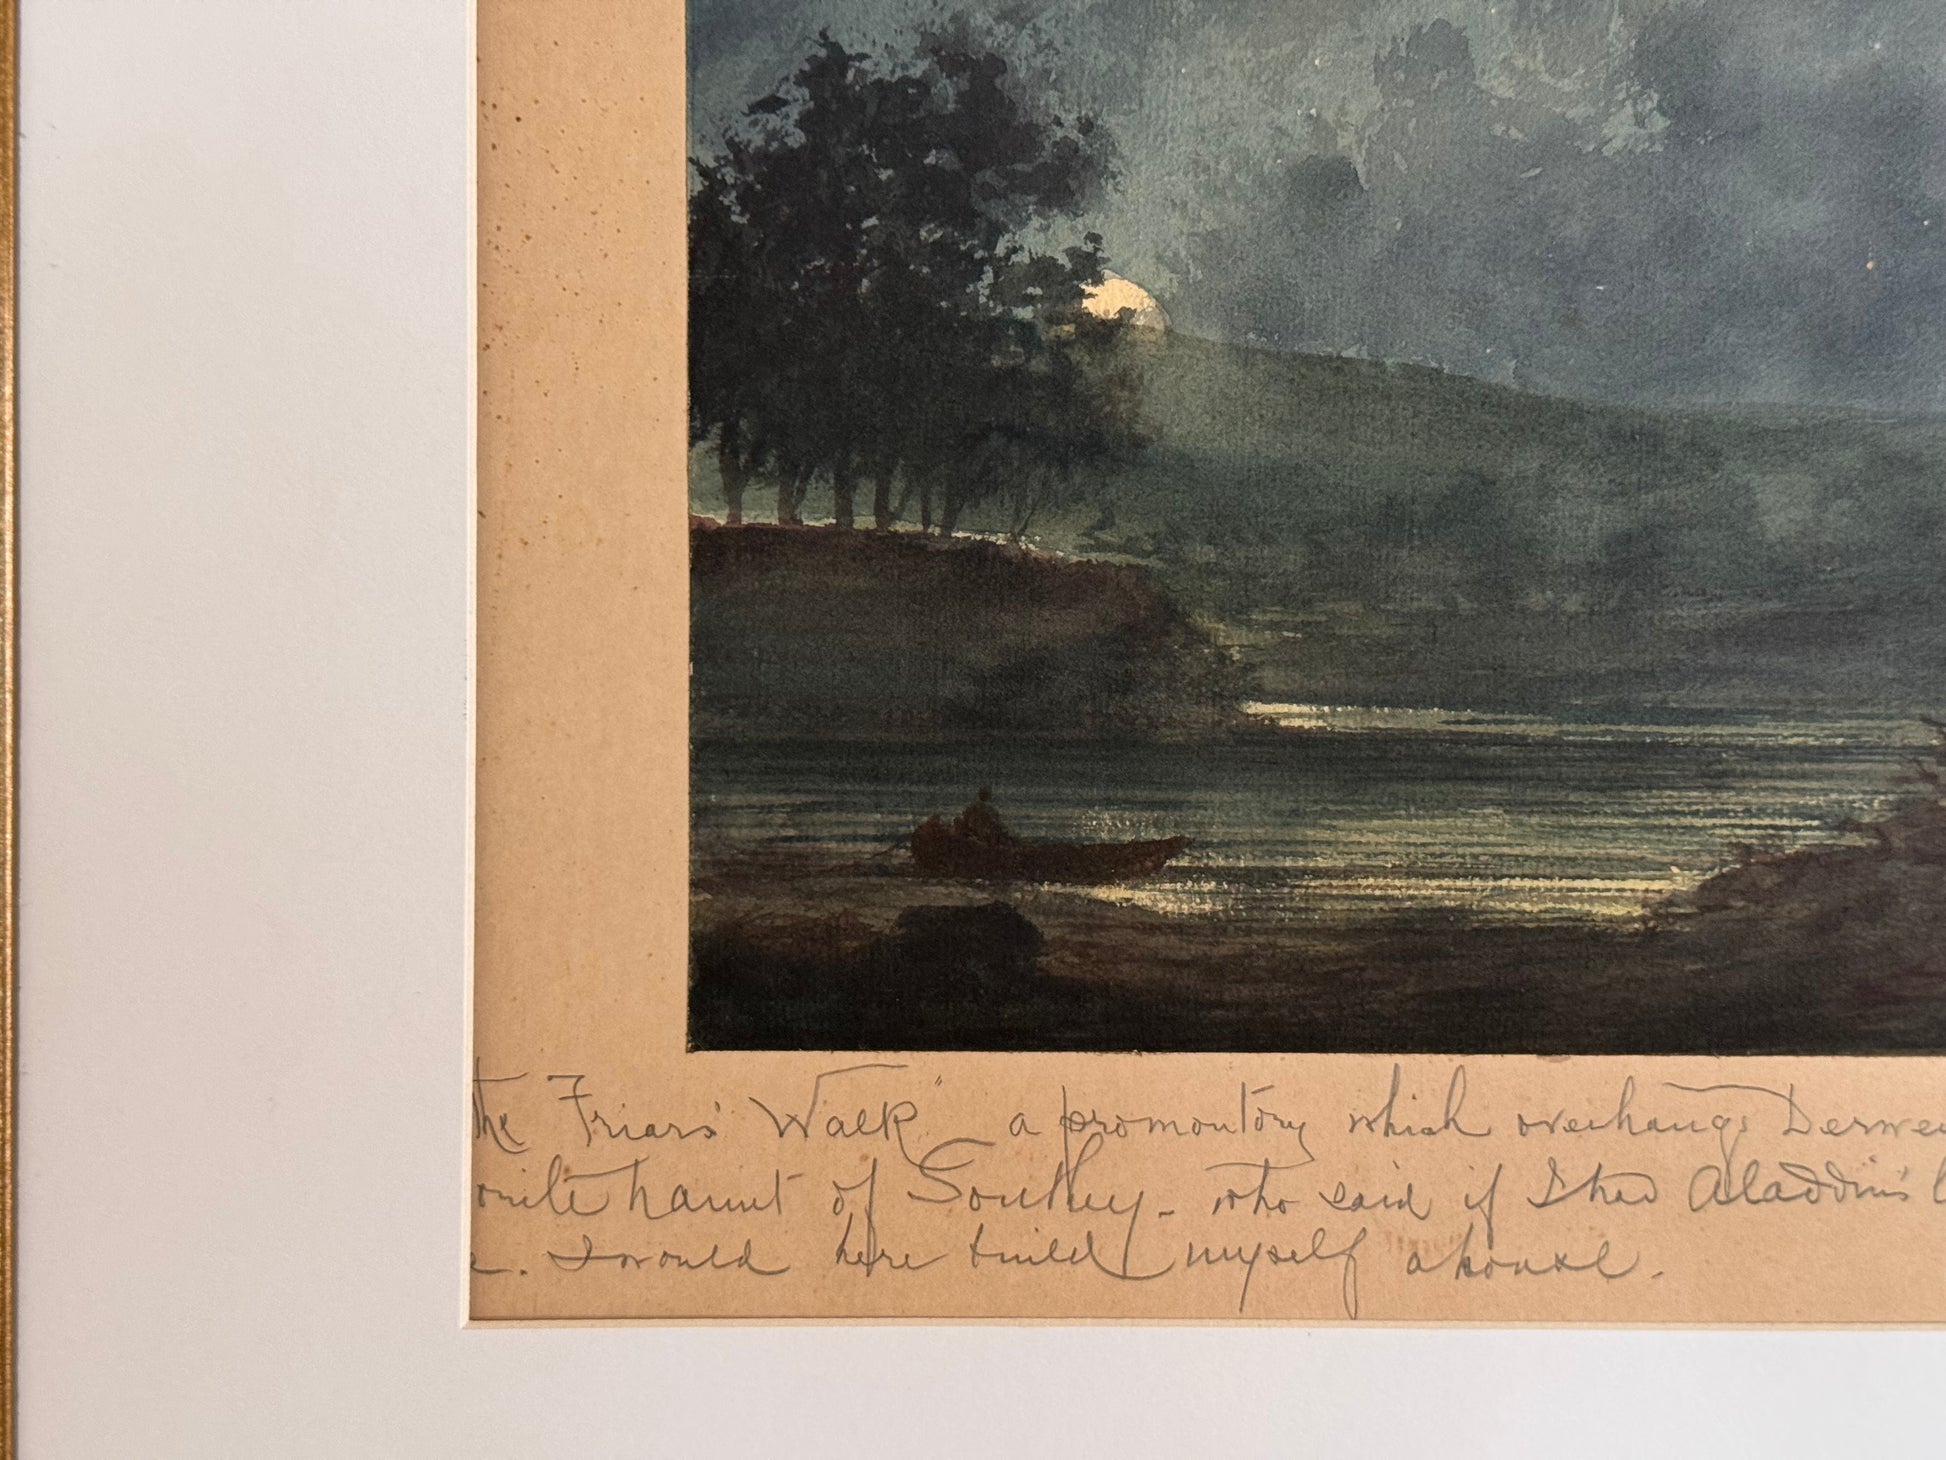 the Friars' Walk" a promontory which overhangs Derwen
ourite haunt of Southey - who said if I had Aladdin's l
e. I would here build myself a house.